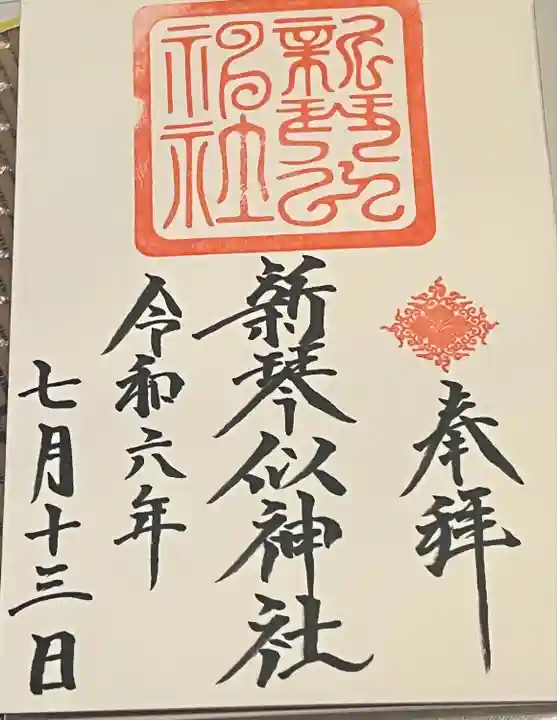 奉拝
新琴似神社
新琴似
神社
令和六年
七月十三日